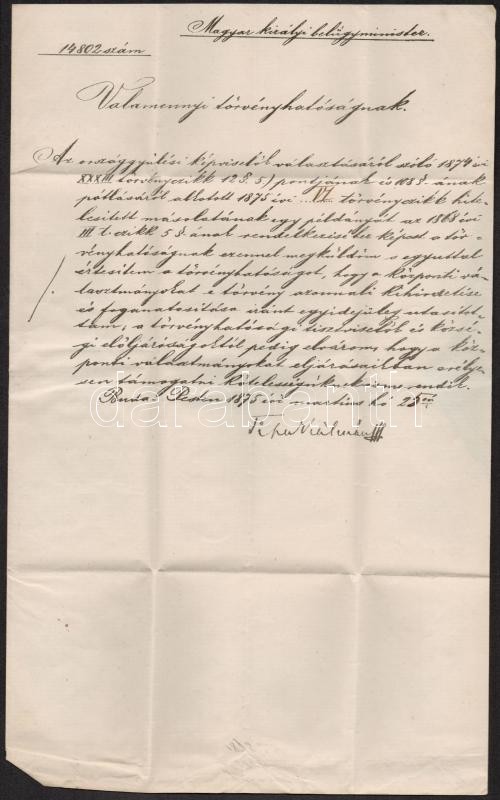 Magyar királyi belügyminister.
14802 szám
Valamennyi törvényhatóságnak.
Az országgyülési képviselők választásáról szóló 1874 évi
XXXIII törvényczikk 12 §. 5) pontjának és 108 §.-ának
pótlásáról alkotott 1875 évi VI törvényczikk hite-
lesitett másolatának egy példányát az 1868 évi
III t. czikk 5 §-ának rendelkezéséhez képest a tör-
vényhatóságnak ezennel megküldöm s egyuttal
értesitem a törvényhatóságot, hogy a központi vá-
lasztmányokat e törvény azonnali kihirdetése
és foganatositása iránt egyidejüleg utasitot-
tam, a törvényhatósági tisztviselők és közsé-
gi elöljáróságoktól pedig elvárom, hogy a köz-
ponti választmányokat eljárásaikban erélye-
sen támogatni kötelességüknek ismerendik.
Buda-Pesten 1875 évi martius hó 25én
Tisza Kálmán
darabanth